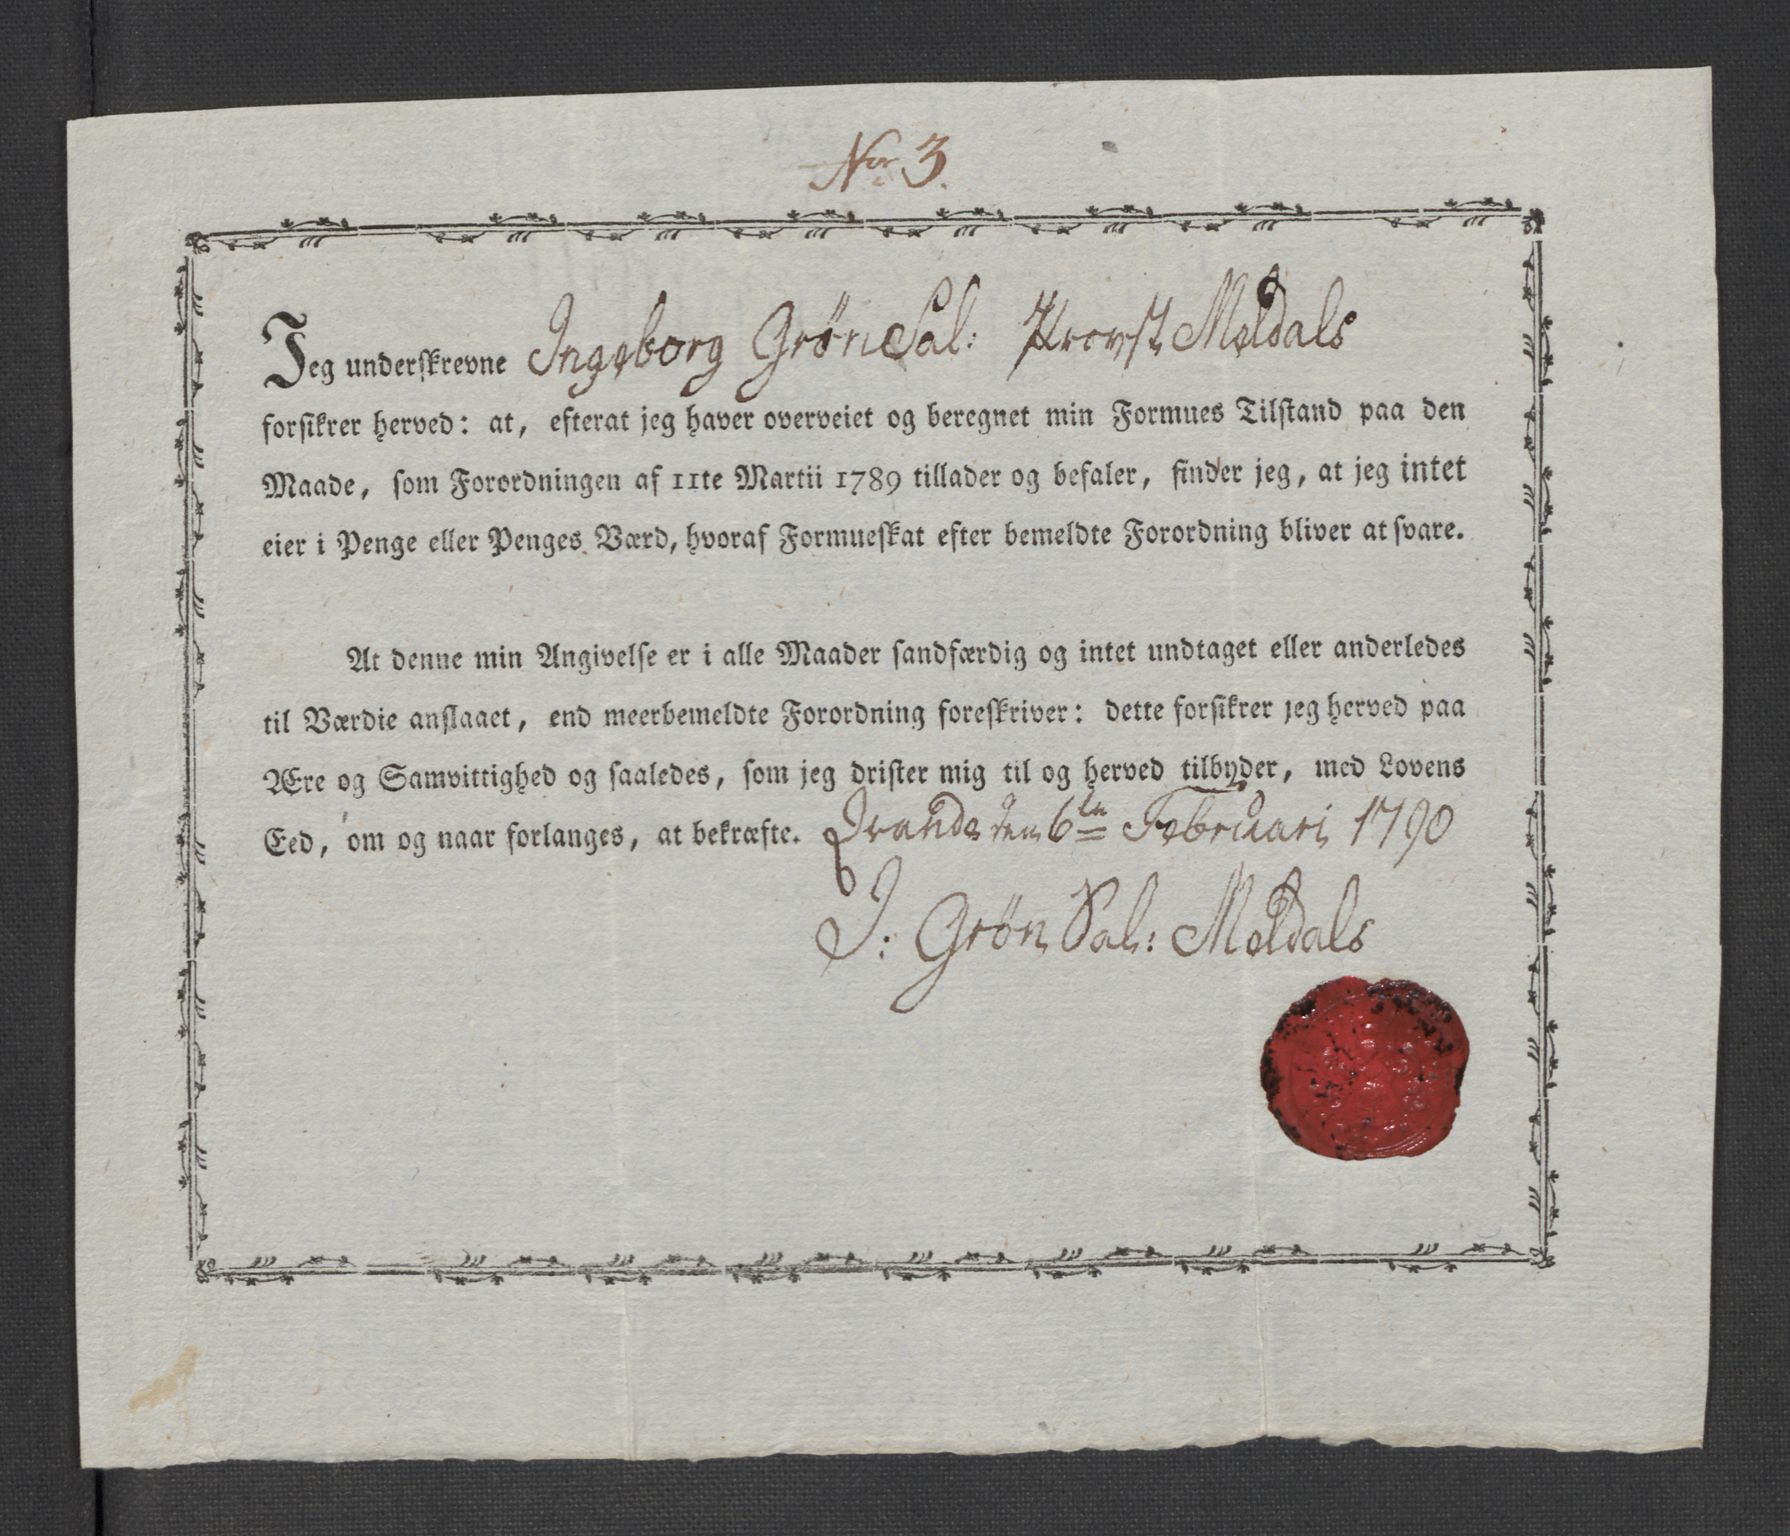 No 3.
Jeg underskrevne Ingeborg Grön Sal: Provst Meldals
forsikrer herved: at, efterat jeg haver overveiet og beregnet min Formues Tilstand paa den
Maade, som Forordningen af 11te Martii 1789 tillader og befaler, finder jeg, at jeg intet
eier i Penge eller Penges Værd, hvoraf Formueskat efter bemeldte Forordning bliver at svare.
At denne min Angivelse er i alle Maader sandfærdig og intet undtaget eller anderledes
til Værdie anslaaet, end meerbemeldte Forordning foreskriver: dette forsikrer jeg herved paa
Ære og Samvittighed og saaledes, som jeg drister mig til og herved tilbyder, med Lovens
Eed, om og naar forlanges, at bekræfte. den 6te Februari 1790
J: Grön Sal: Meldals